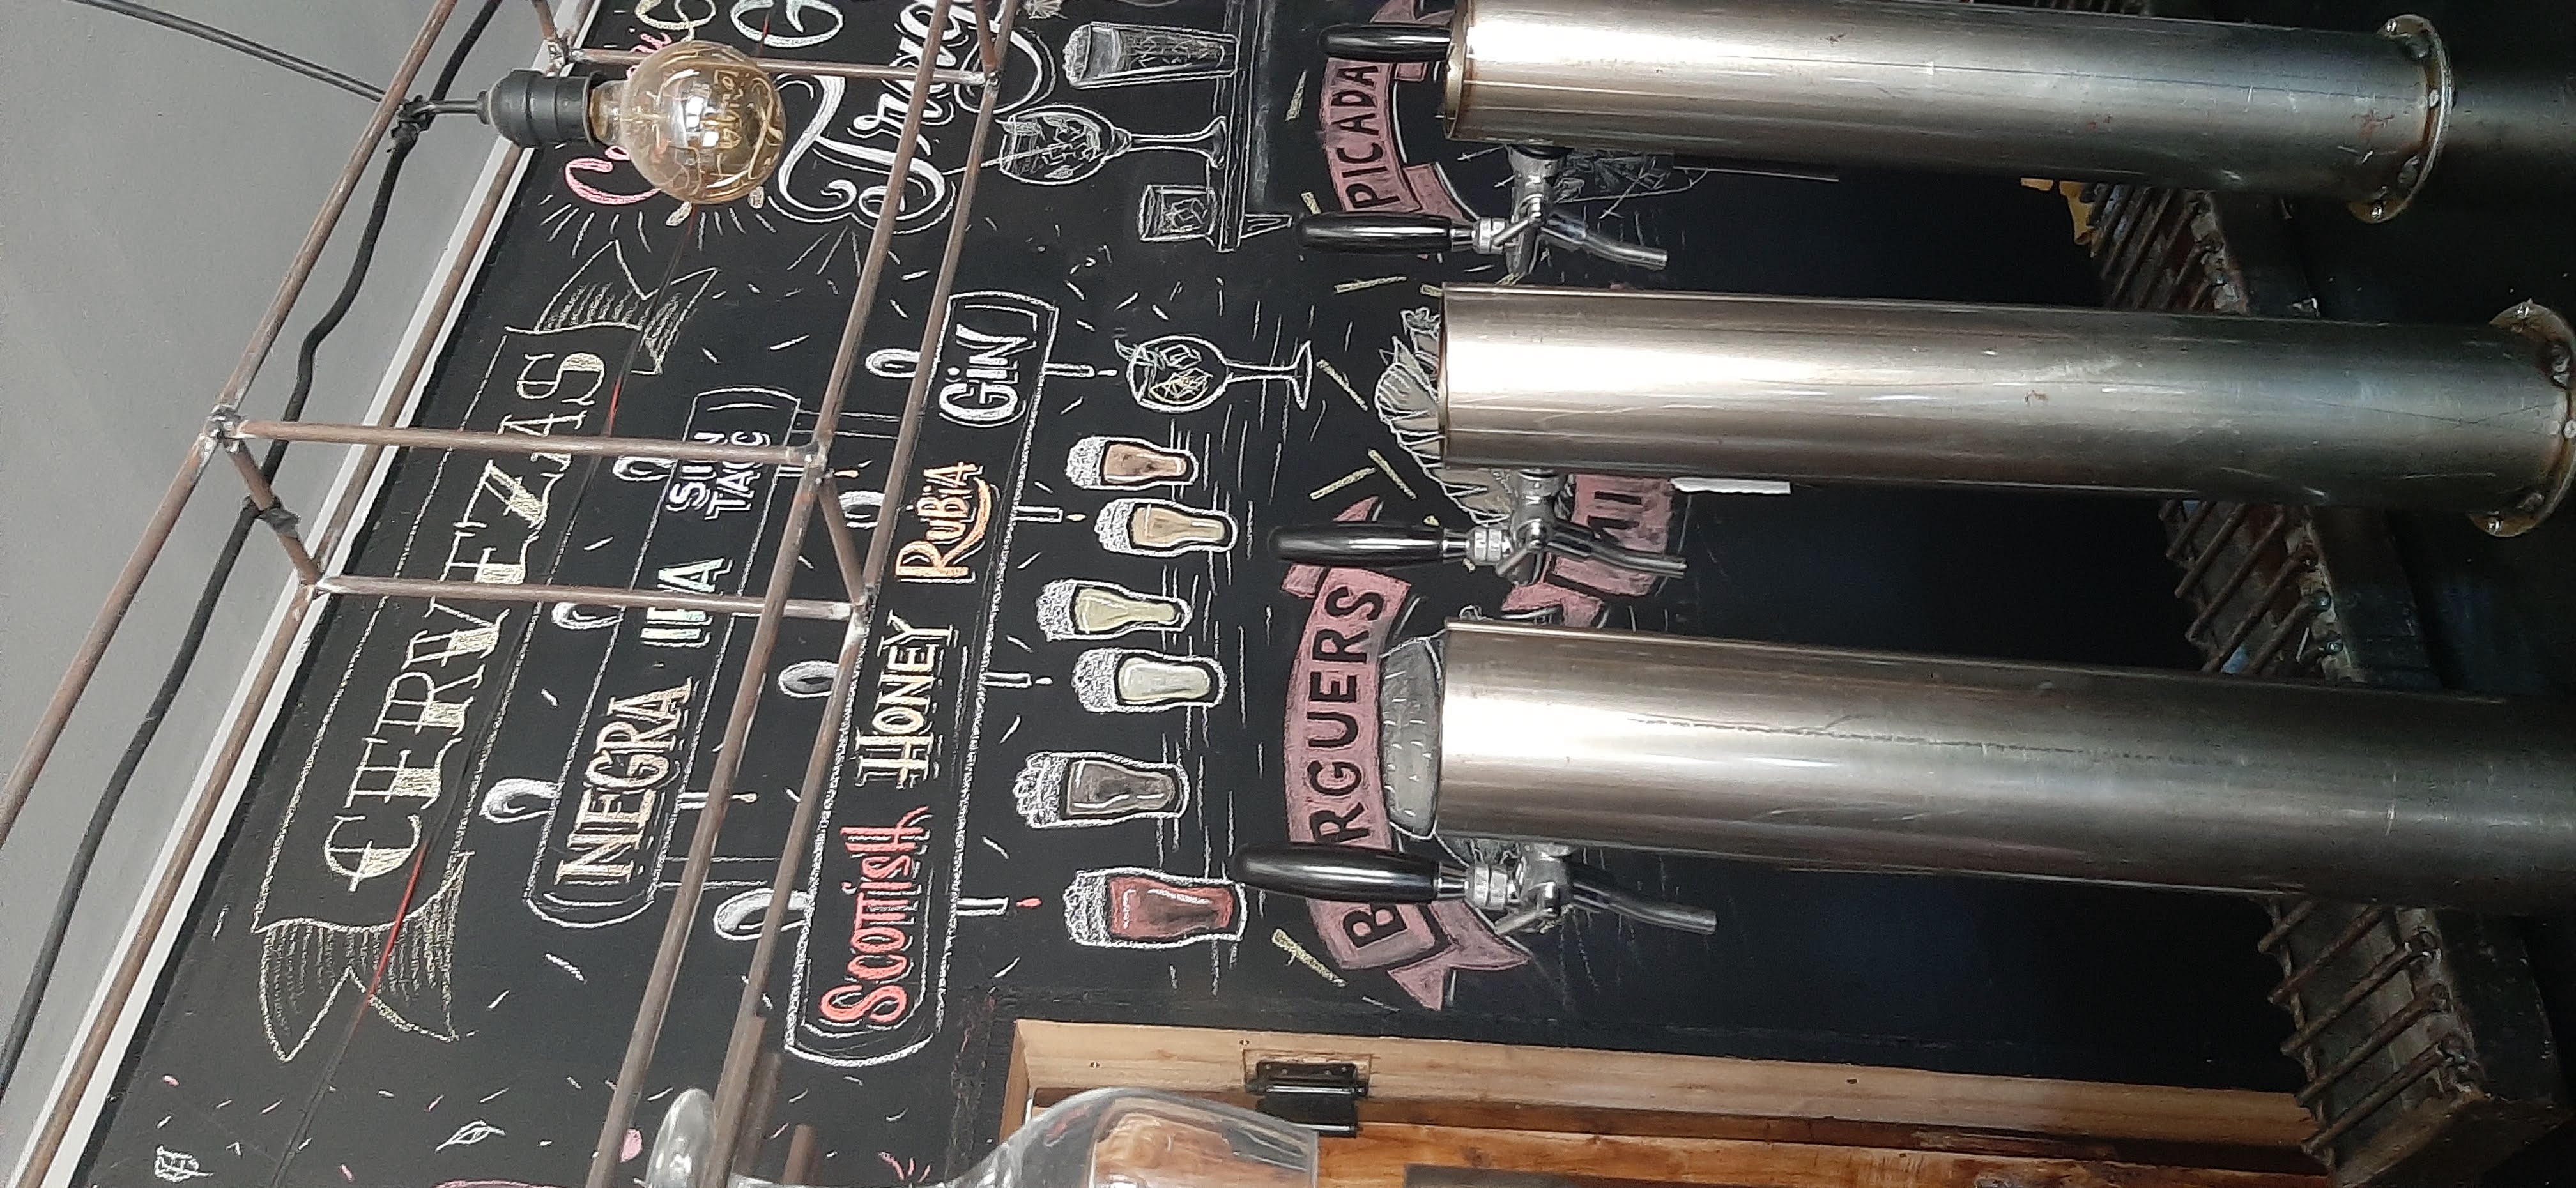 CERVEZAS
NEGRA IPA SIN TACC
SCOTTISH HONEY RUBIA GIN
BURGUERS
PICADA
MI